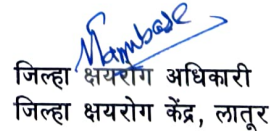 जिल्हा क्षयरोग अधिकारी
जिल्हा क्षयरोग केंद्र, लातूर